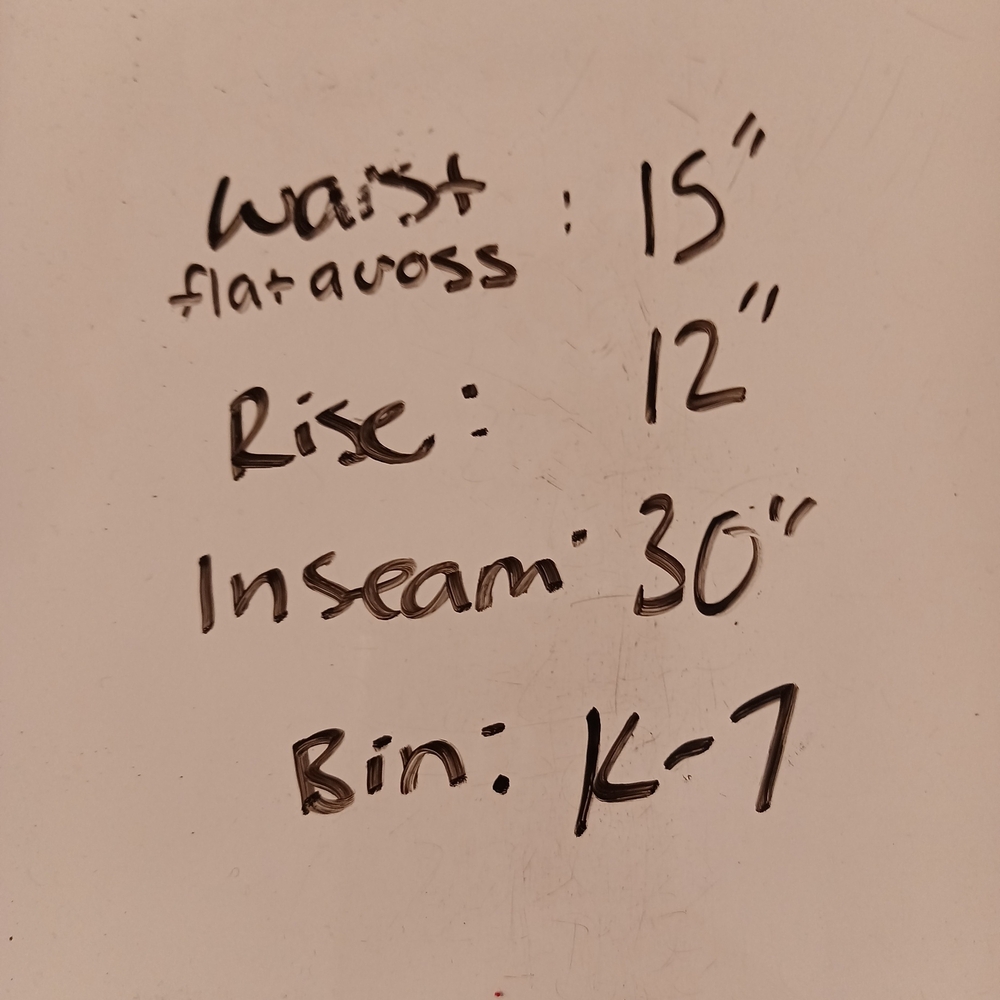 Waist : 15"
flat across
Rise : 12"
Inseam : 30"
Bin : K-7